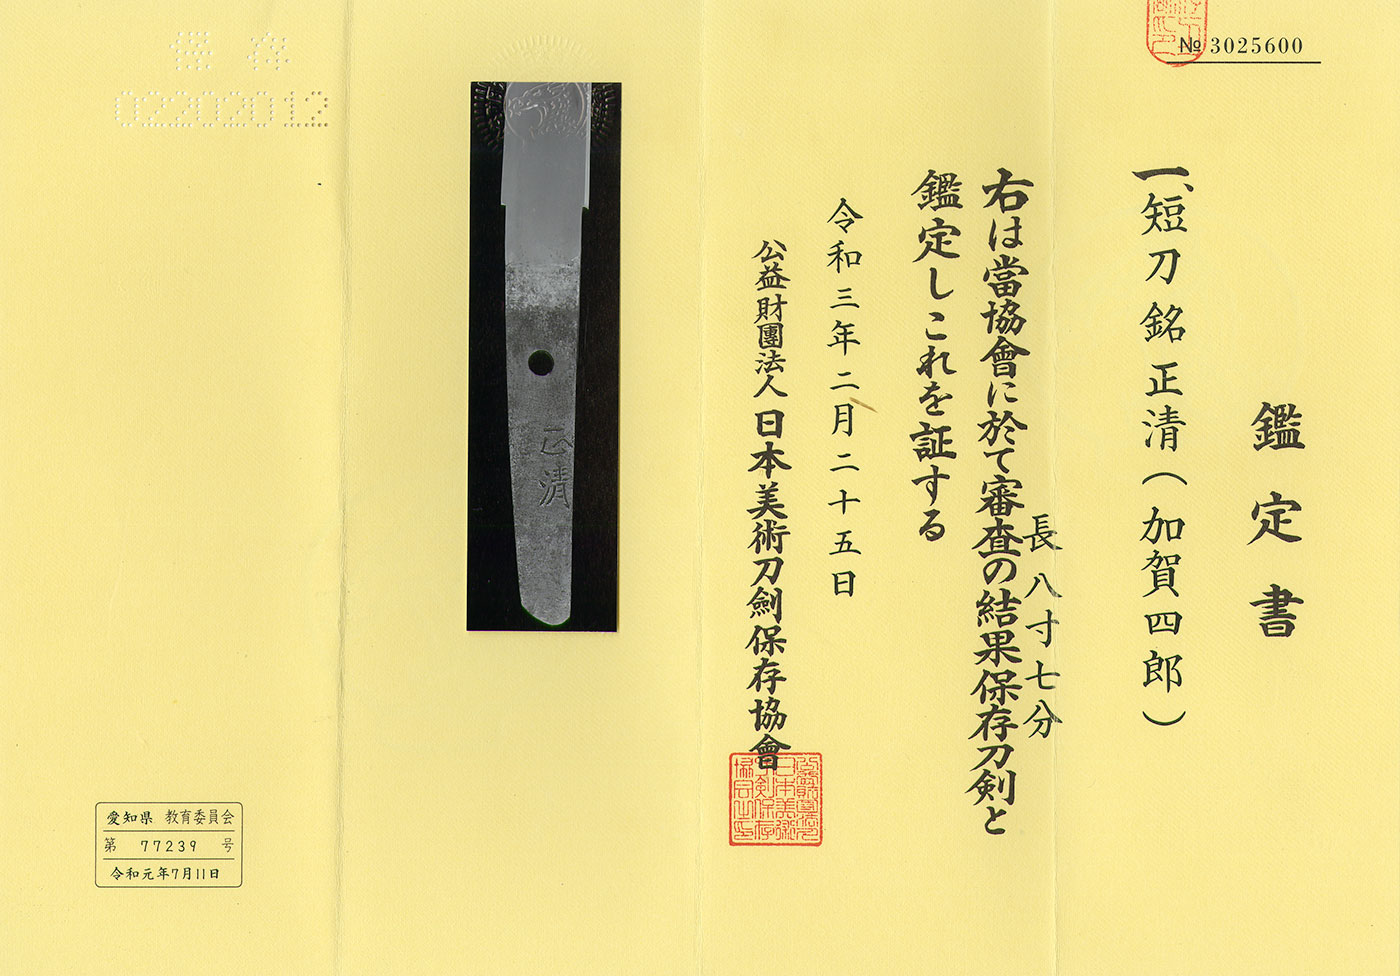 № 3025600
鑑定書
一、短刀 銘 正清(加賀四郎)
長 八寸七分
右は當協會に於て審査の結果保存刀剣と
鑑定しこれを証する
令和三年二月二十五日
公益財團法人 日本美術刀劍保存協會
正清
保存
02202012
愛知県 教育委員会
第 77239 号
令和元年7月11日